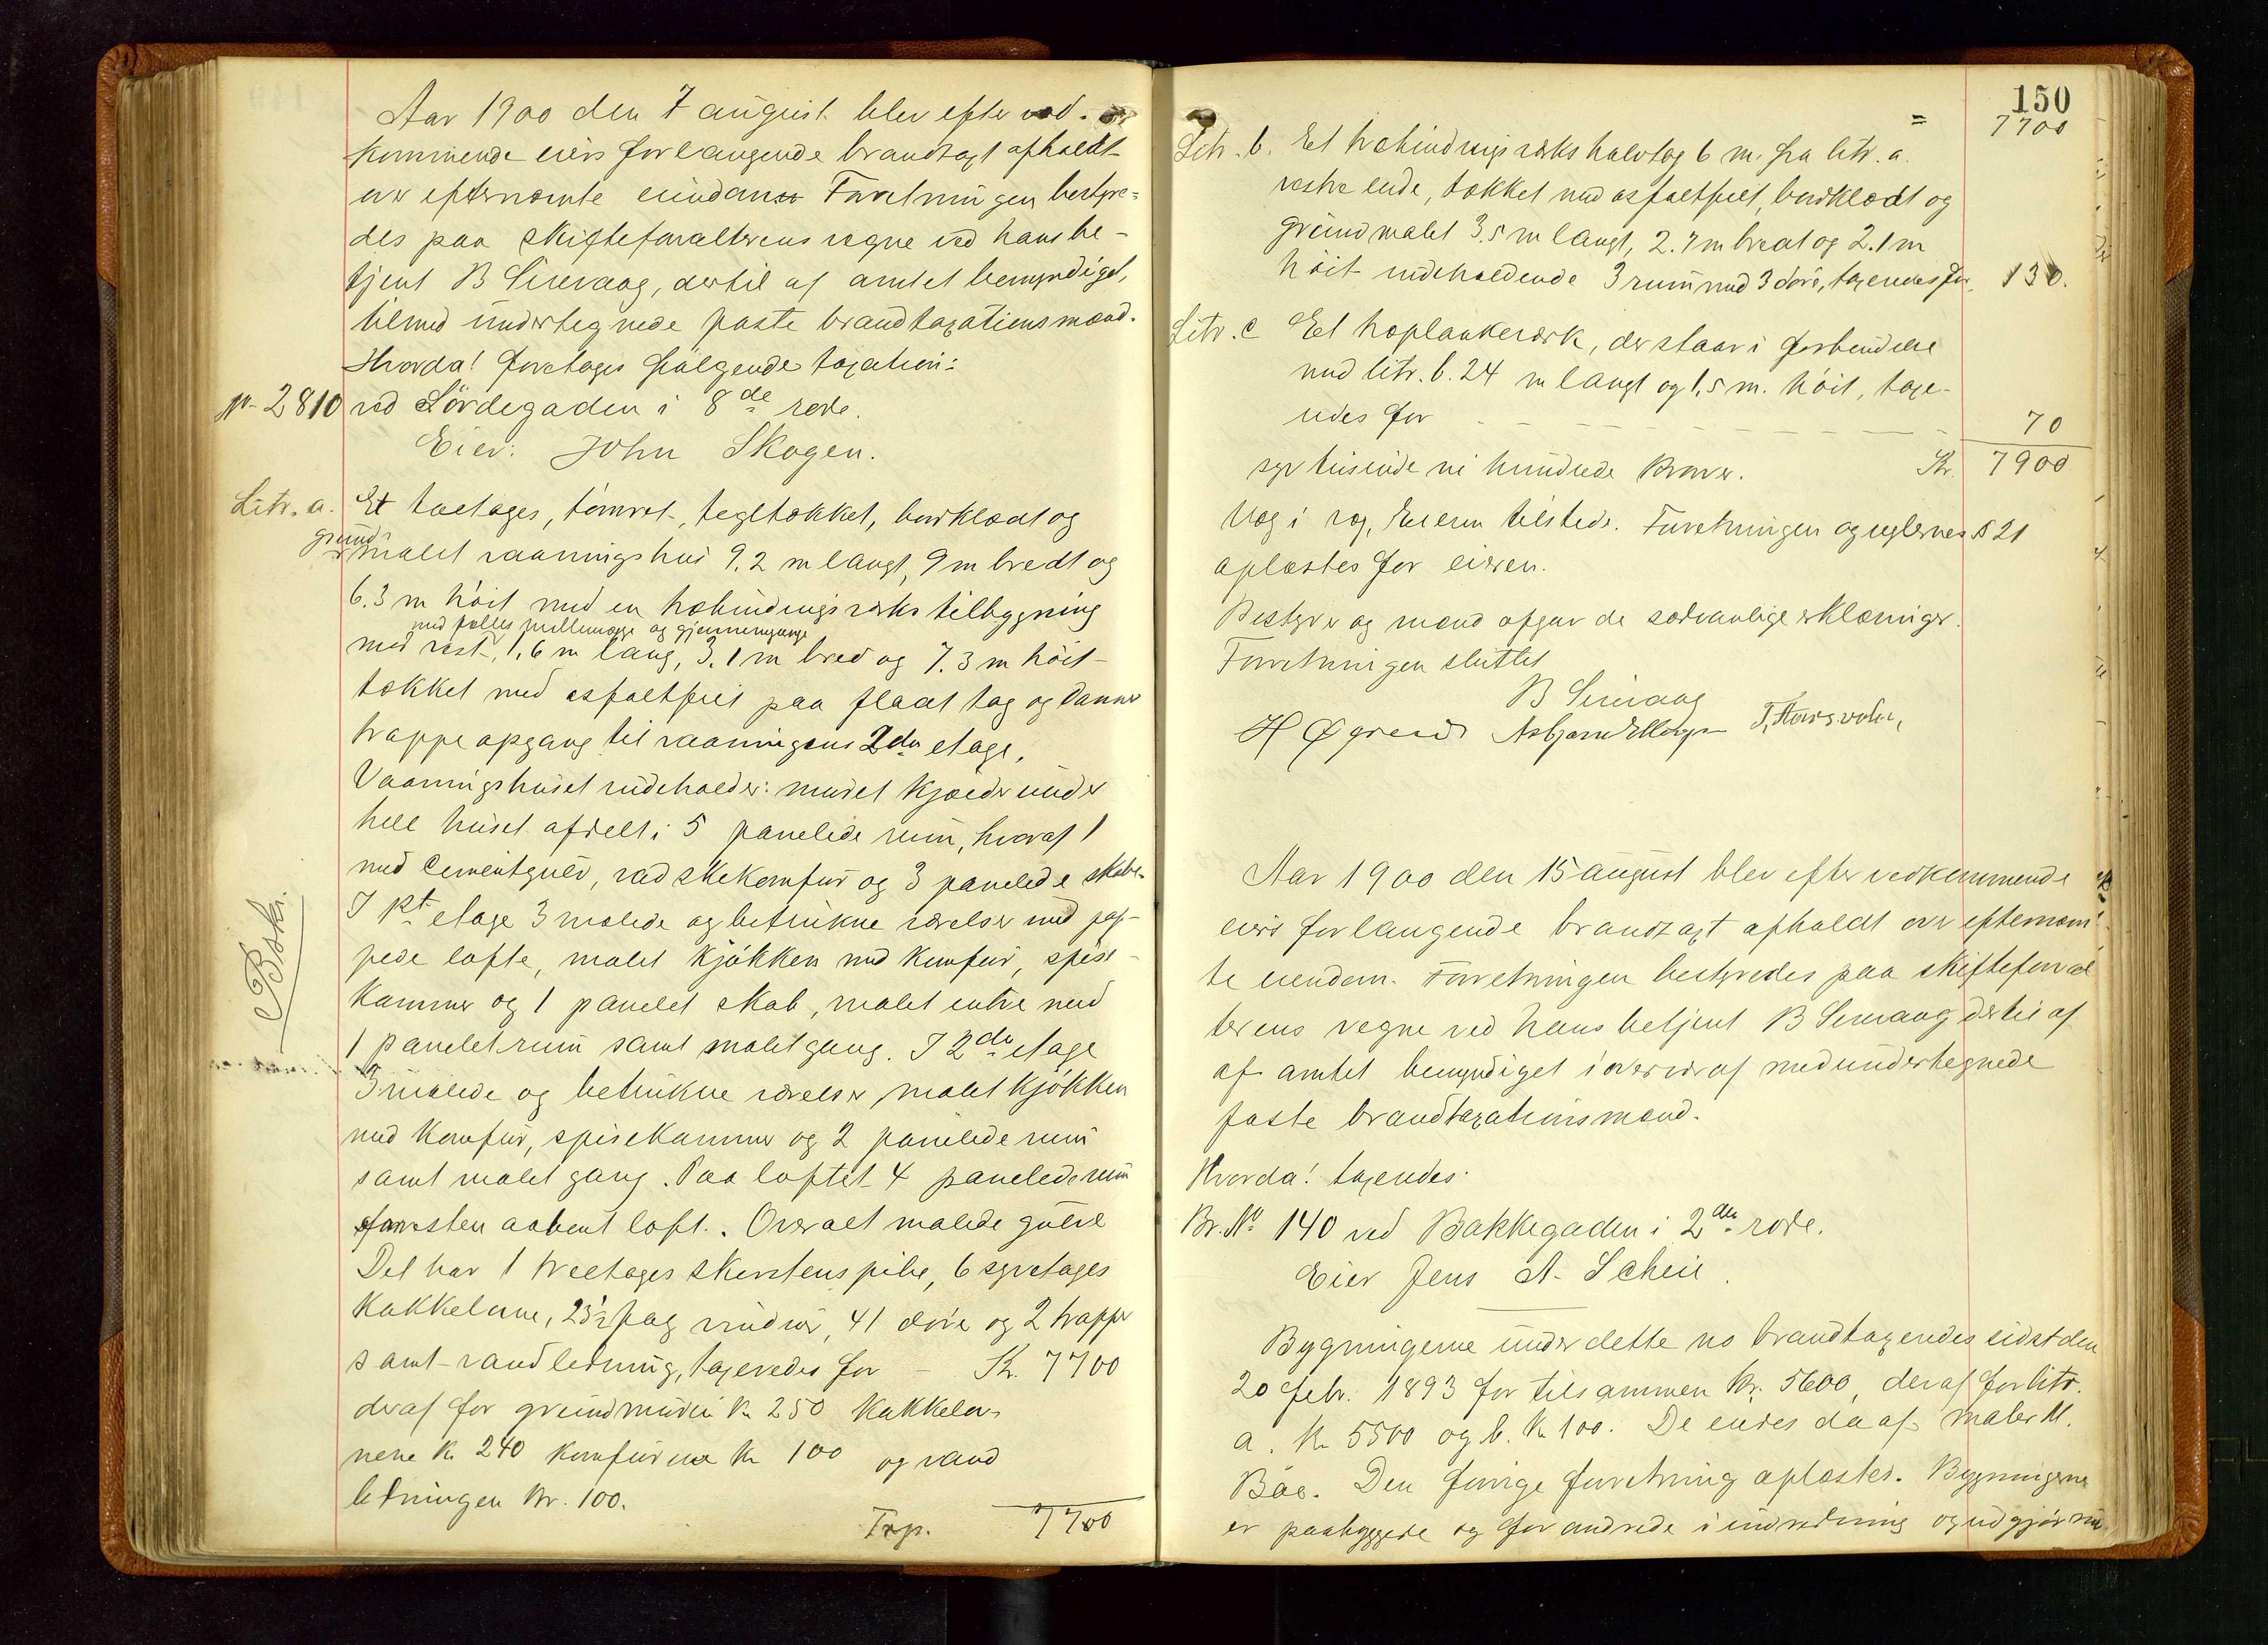 Aar 1900 den 7 august blev efter ved-
kommende eiers forlangende brandtaxt afholdt
over efternævnte eiendom Forretningen bestyre=
des paa skifteforvalterens vegne ved hans be-
tjent B Sirevaag, dertil af amtet bemyndiget,
tilmed undertegnede faste brandtaxationsmænd.
Hvorda! foretages følgende taxation:
No 2810 ved Lövdegaden i 8de rode.
Eier: John Skogen.
Litr. a. Et toetages, tömret, tegltækket, bordklædt og
grund-
malet vaaningshus 9.2 m langt, 9 m bredt og
6.3 m höit med en træbindingsværks tilbygning
med fælles mellemvægge og gjennemgange
mod vest, 1,6 m lang, 3.1 m bred og 7.3 m höit
tækket med asfaltfilt paa fladt tag og danner
trappeopgang til vaaningens 2den etage.
Vaaningshuset indeholder: muret kjælder under
hele huset afdelt i 5 panelede rum, hvoraf 1
med cementgulv, vadskekomfur og 3 panelede skabe.
I 1st etage 3 malede og betrukne værelser med pap-
pede lofte, malet kjökken med komfur, spise-
kammer og 1 panelet skab, malet entre med
1 panelet rum samt malet gang. I 2den etage
3 malede og betrukne værelser, malet kjökken
med komfur, spisekammer og 2 panelede rum
samt malet gang. Paa loftet 4 panelede rum
forresten aabent loft. Overalt malede gulve
Det har 1 treetages skorstenspibe, 6 syvetages
kakkelovne, 23½ fag vinduer, 41 döre og 2 trapper
samt vandledning, taxeredes for - Kr. 7700
deraf for grundmuren Kr 250 kakkelov-
nene Kr. 240 komfurene Kr 100 og vand
ledningen Kr. 100.
Trp. 7700
Bskr.
150
= 7700
Litr. b. Et træbindingsværks halvtag 6 m. fra litr. a.
vestre ende, tækket med asfaltfilt, bordklædt og
grundmalet 3.5 m langt, 2.7 m bredt og 2.1 m
höit indeholdende 3 rum med 3 döre, taxeredes for 130.
Litr. c Et træplankeværk, der staar i forbindelse
med litr. b. 24 m langt og 1,5 m. höit, taxe-
redes for - - - 70
syv tusinde ni hundrede kroner. Kr. 7900
Væg i væg, Eieren tilstede. Forretningen og reglernes § 21
oplæstes for eieren.
Bestyrer og mænd afgav de sædvanlige erklæringer.
Forretningen sluttet
B Sirevaag
H Øgreid Asbjørn Ellingsen T. Thorsvolen,
Aar 1900 den 15 august blev efter vedkommende
eiers forlangende brandtaxt afholdt over efternævn-
te eiendom. Forretningen bestyredes paa skifteforval
terens vegne ved hans betjent B Sirevaag dertil af
af amtet bemyndiget i overvær af medundertegnede
faste brandtaxationsmænd.
Hvorda! taxeredes
Br. No 140 ved Bakkegaden i 2den rode.
Eier Jens A. Scheie.
Bygningerne under dette no brandtaxeredes sidst den
20 febr. 1893 for tilsammen Kr. 5600, deraf for litr.
a. Kr 5500 og b. Kr 100. De eiedes da af maler M.
Bøe. Den forrige forretning oplæstes. Bygningerne
er paabyggede og forandrede i indredning og udgjör nu